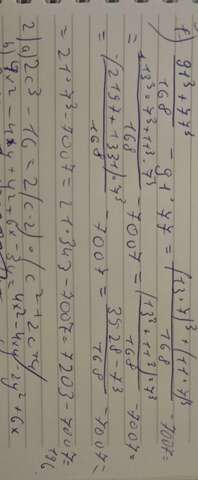 г) 91³+77³ / 168 - 91·77 = (13·7)³+(11·7)³ / 168 - 7007=
= 13³·7³+11³·7³ / 168 - 7007 = (13³+11³)·7³ / 168 - 7007=
= (2197+1331)·7³ / 168 - 7007 = 3528·7³ / 168 - 7007=
= 21·7³-7007=21·343-7007=7203-7007=
196.
2) а) 2c³-16=2(c-2)·(c²+2c+4)